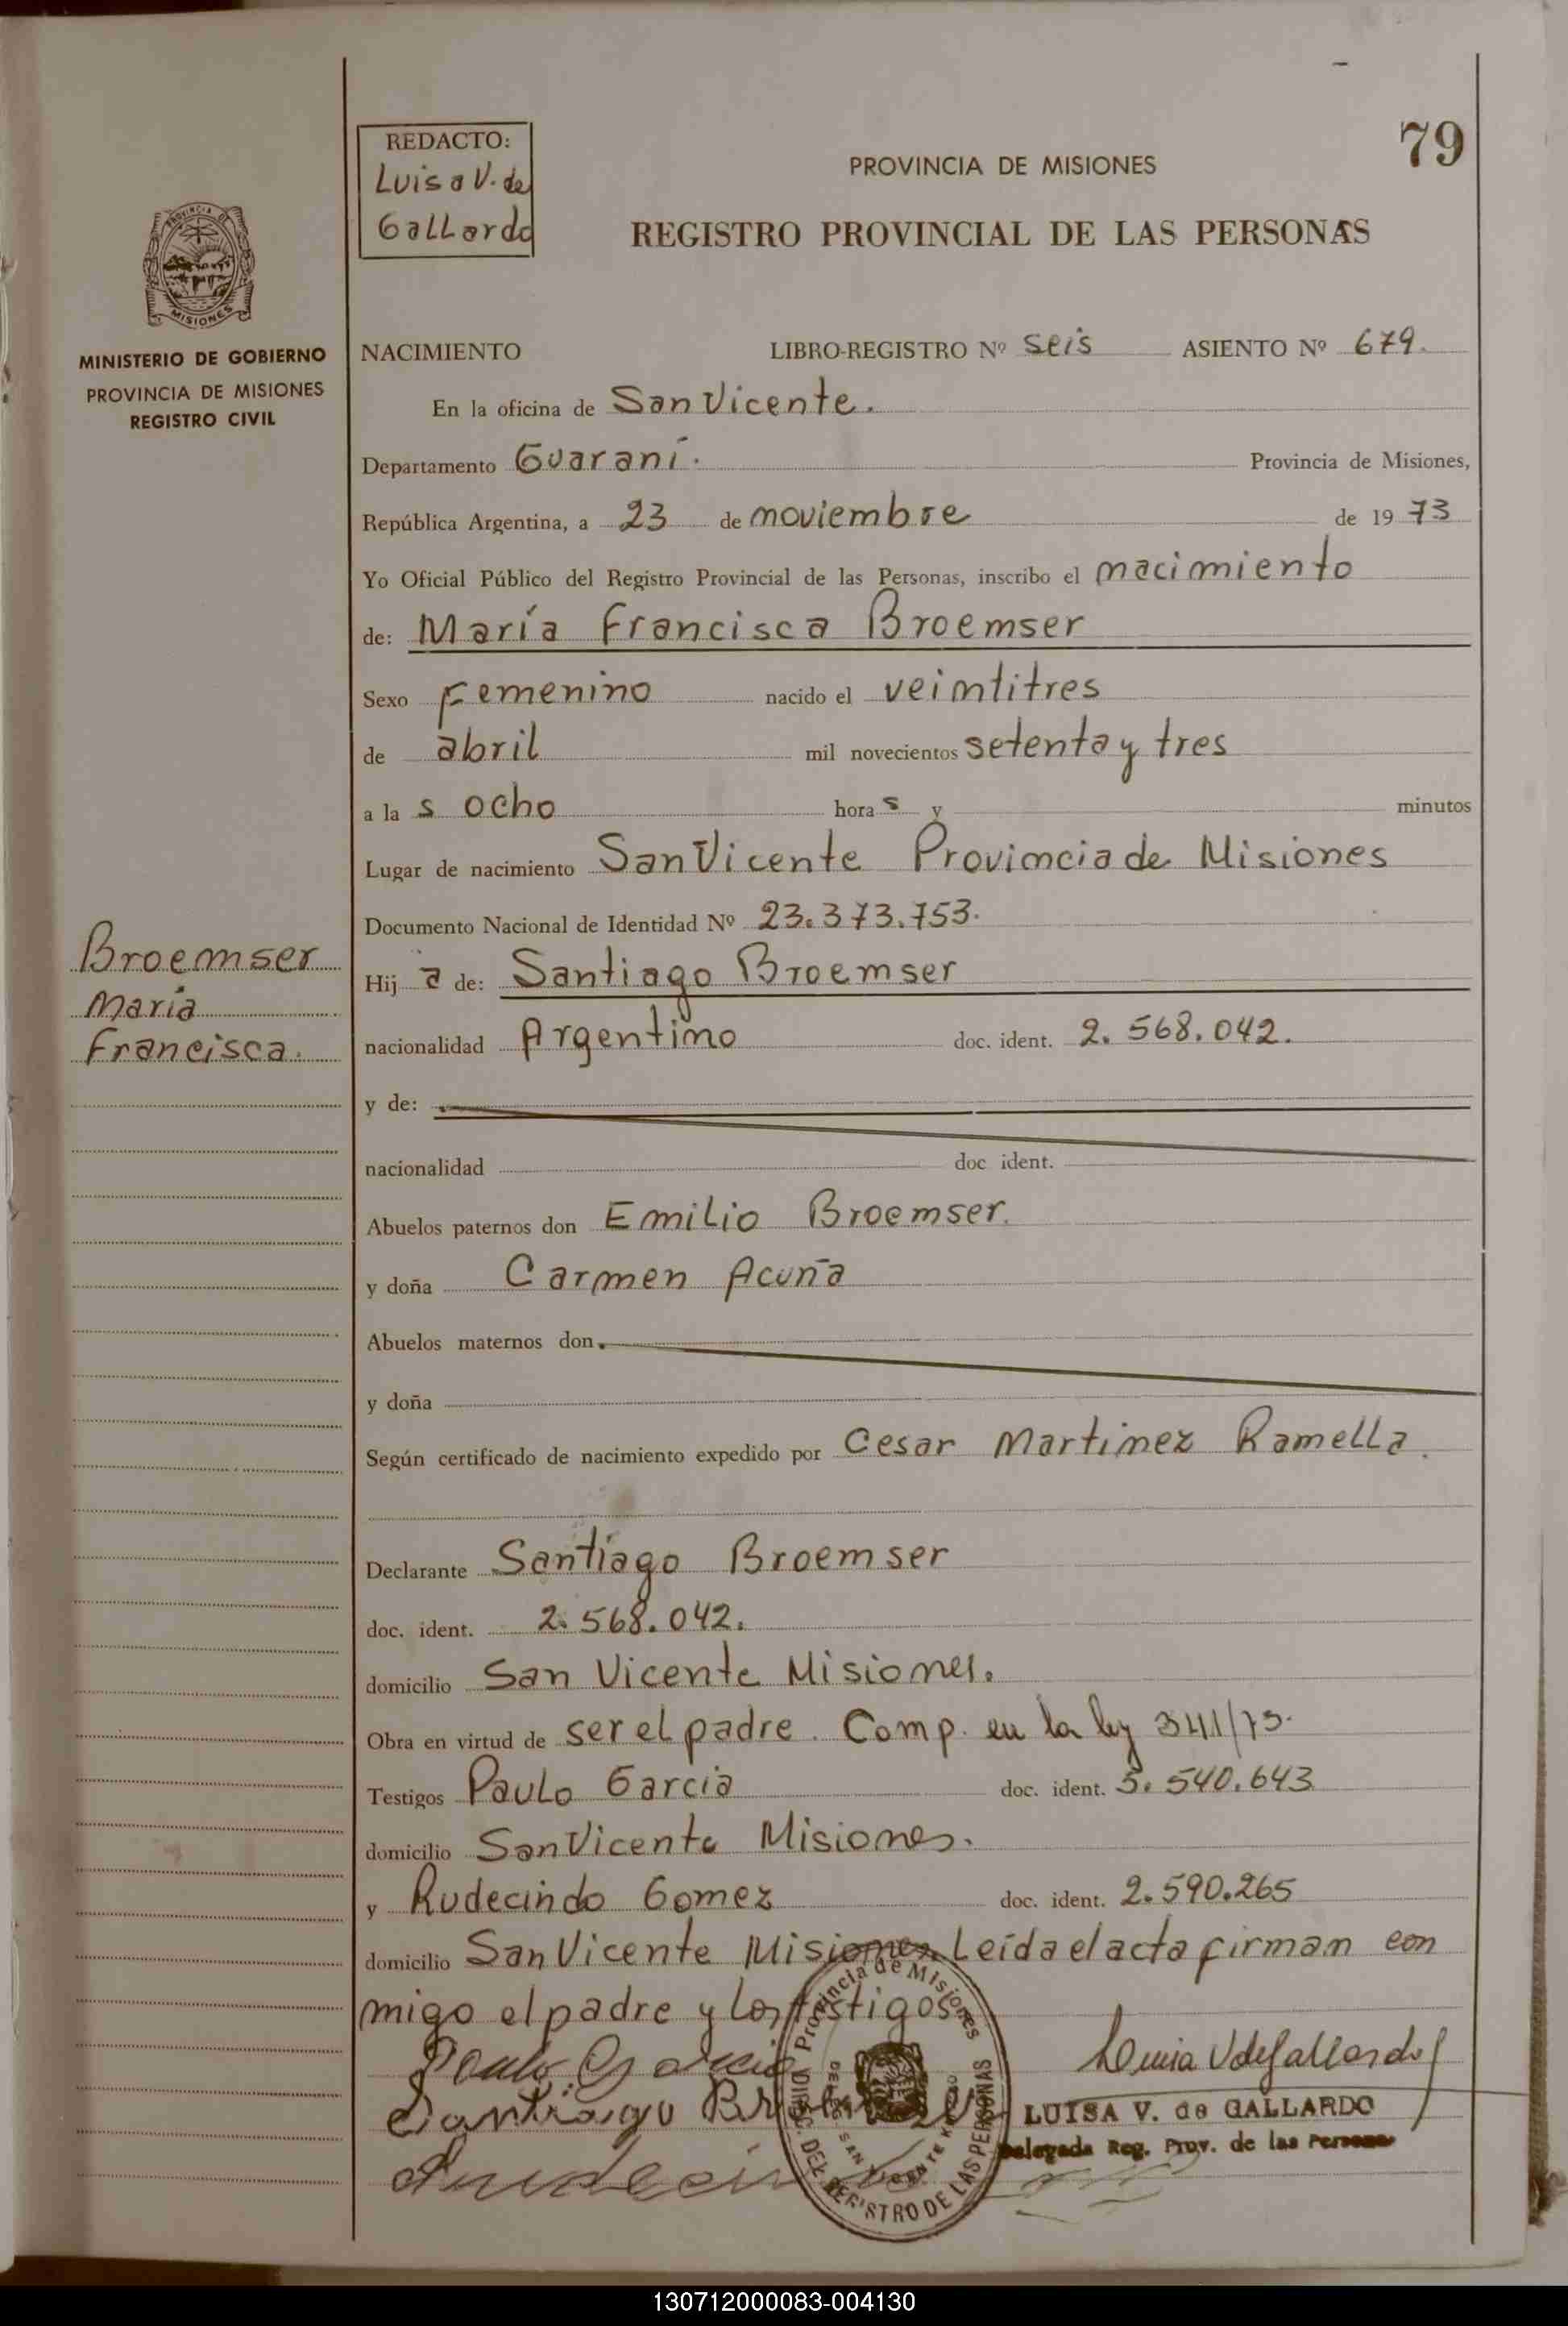 79
REDACTO:
Luisa V. de
Gallardo
PROVINCIA DE MISIONES
REGISTRO PROVINCIAL DE LAS PERSONAS
PROVINCIA DE
MISIONES
MINISTERIO DE GOBIERNO
PROVINCIA DE MISIONES
REGISTRO CIVIL
NACIMIENTO LIBRO-REGISTRO Nº seis ASIENTO Nº 679.
En la oficina de San Vicente.
Departamento Guaraní. Provincia de Misiones,
República Argentina, a 23 de noviembre de 19 73
Yo Oficial Público del Registro Provincial de las Personas, inscribo el nacimiento
de: María Francisca Broemser
Sexo Femenino nacido el veintitres
de abril mil novecientos setenta y tres
a la s ocho hora s y minutos
Lugar de nacimiento San Vicente Provincia de Misiones
Documento Nacional de Identidad Nº 23.373.753.
Broemser
Maria
Francisca.
Hij a de: Santiago Broemser
nacionalidad Argentino doc. ident. 2.568.042.
y de:
nacionalidad doc ident.
Abuelos paternos don Emilio Broemser.
y doña Carmen Acuña
Abuelos maternos don
y doña
Según certificado de nacimiento expedido por Cesar Martinez Ramella.
Declarante Santiago Broemser
doc. ident. 2.568.042.
domicilio San Vicente Misiones.
Obra en virtud de ser el padre. Comp. en la ley 3411/73.
Testigos Paulo Garcia doc. ident. 5.540.643
domicilio San Vicente Misiones.
y Rudecindo Gomez doc. ident. 2.590.265
domicilio San Vicente Misiones. Leída el acta firman con
migo el padre y los testigos
Paulo Garcia
Santiago
Luisa V de Gallardo
LUISA V. de GALLARDO
Delegada Reg. Prov. de las Personas
Provincia de Misiones
DEL REGISTRO DE LAS PERSONAS
130712000083-004130